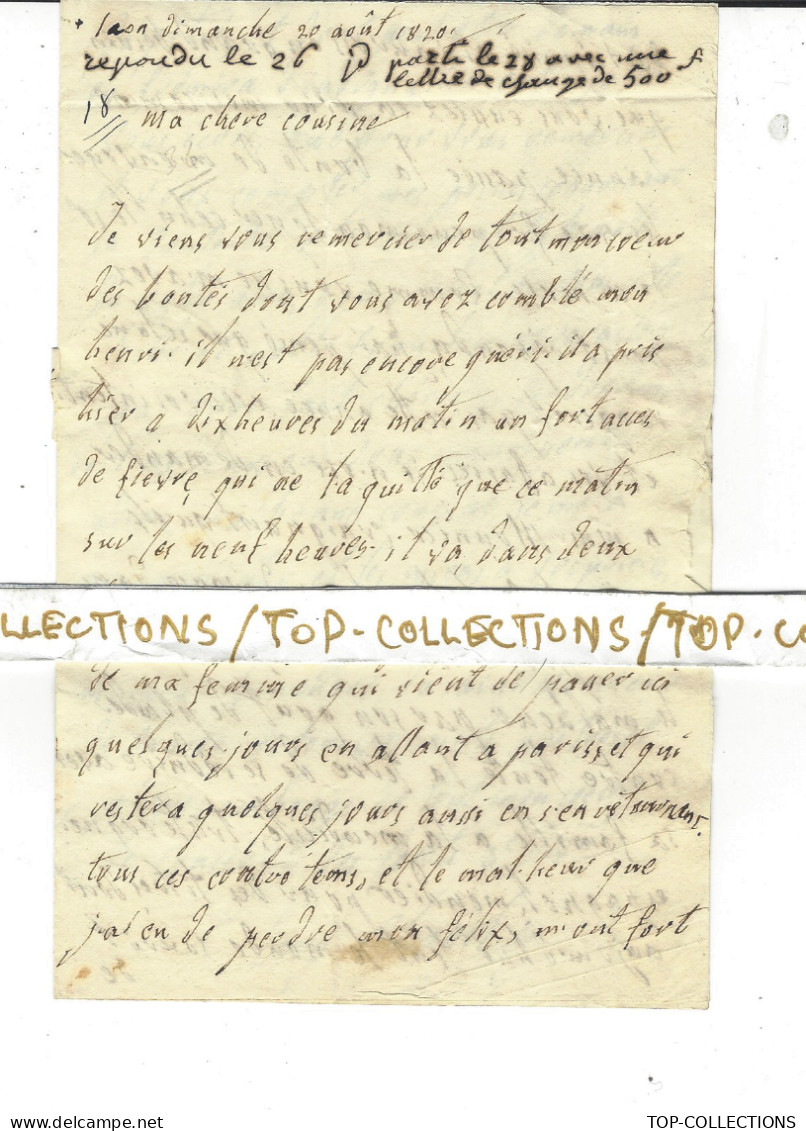 + laon dimanche 20 août 1820.
repondu le 26 parti le 28 avec une
lettre de change de 500 f
18
ma chere cousine
Je viens vous remercier de tout mon coeur
des bontés dont vous avez comblé mon
henri. il n'est pas encore guéri. il a pris
hier a dix heures du matin un fort acces
de fievre, qui ne la quitté que ce matin
sur les neuf heures. il va, dans deux
LLECTIONS / TOP-COLLECTIONS / TOP-CO
de ma femme qui vient de passer ici
quelques jours en allant a paris, et qui
restera quelques jours aussi en s'en retournant.
tous ces contretems, et le malheur que
j'ai eu de perdre mon félix, m'ont fort
TOP-COLLECTIONS